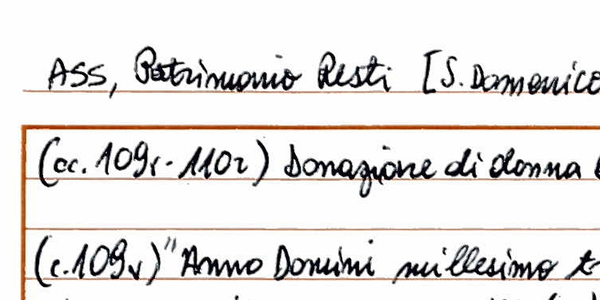 ASS, Patrimonio Resti [S. Domenico
(cc. 109r-110r) Donazione di donna
(c. 109v) "Anno Domini millesimo